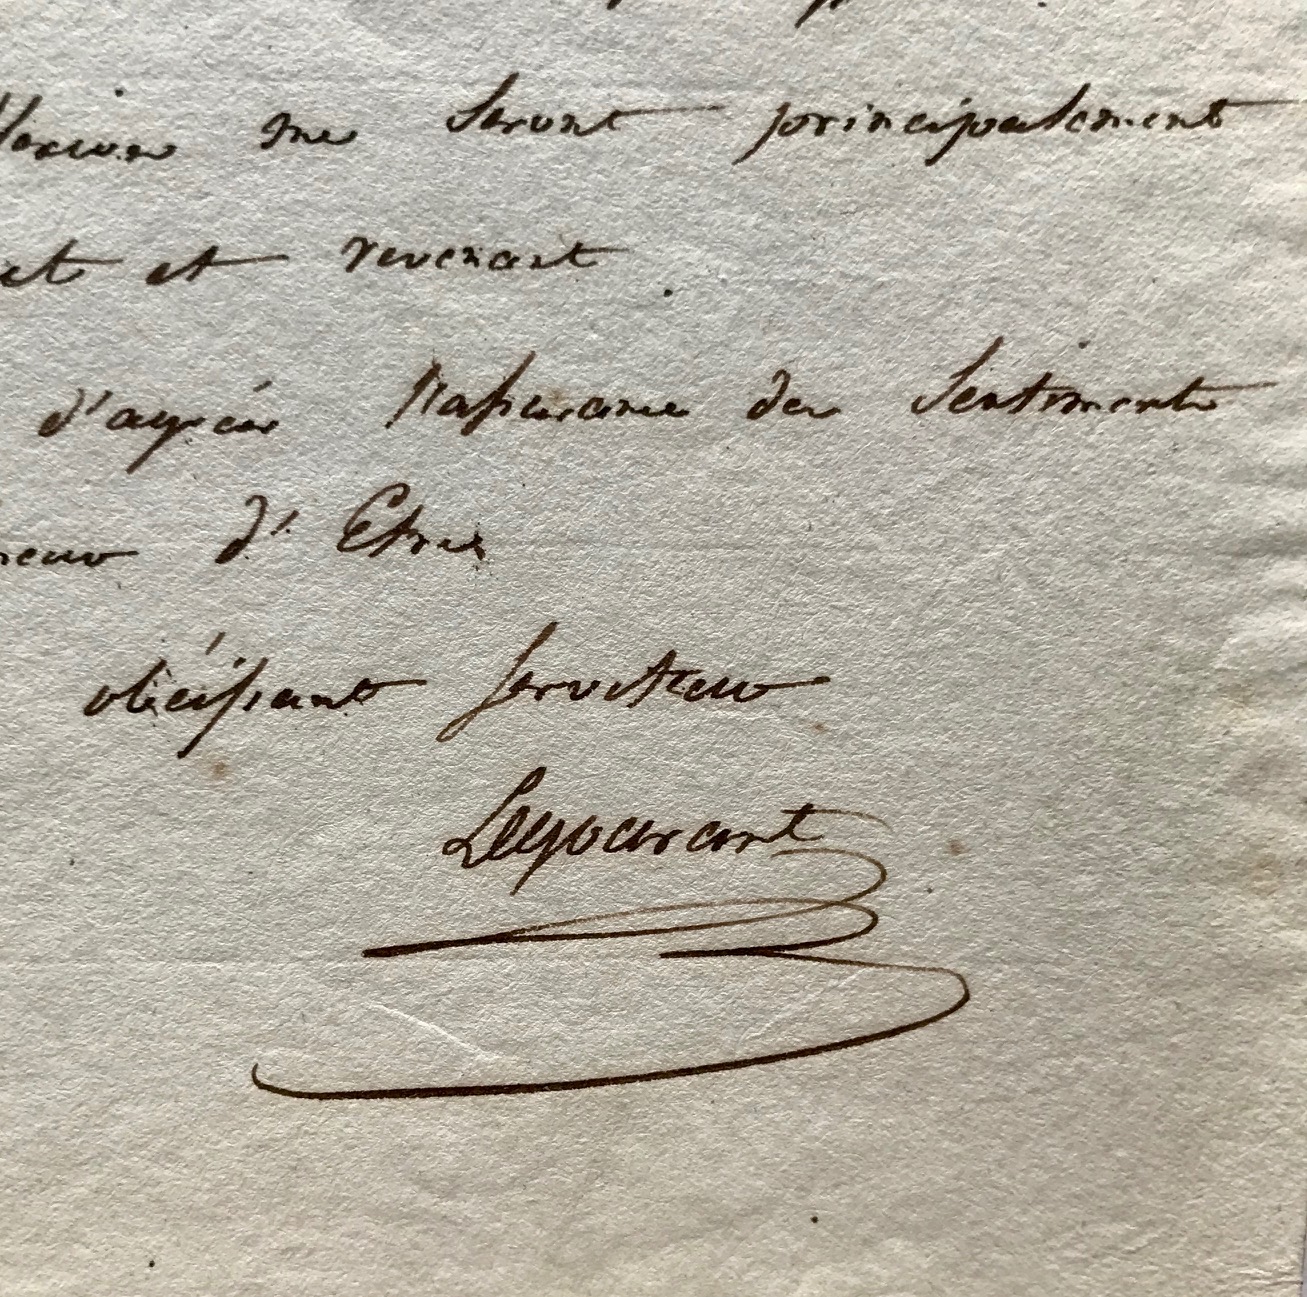 me seront principalement
et revenant.
d'agréer l'assurance des Sentiments
d'Etre
obéissant serviteur
Legourant